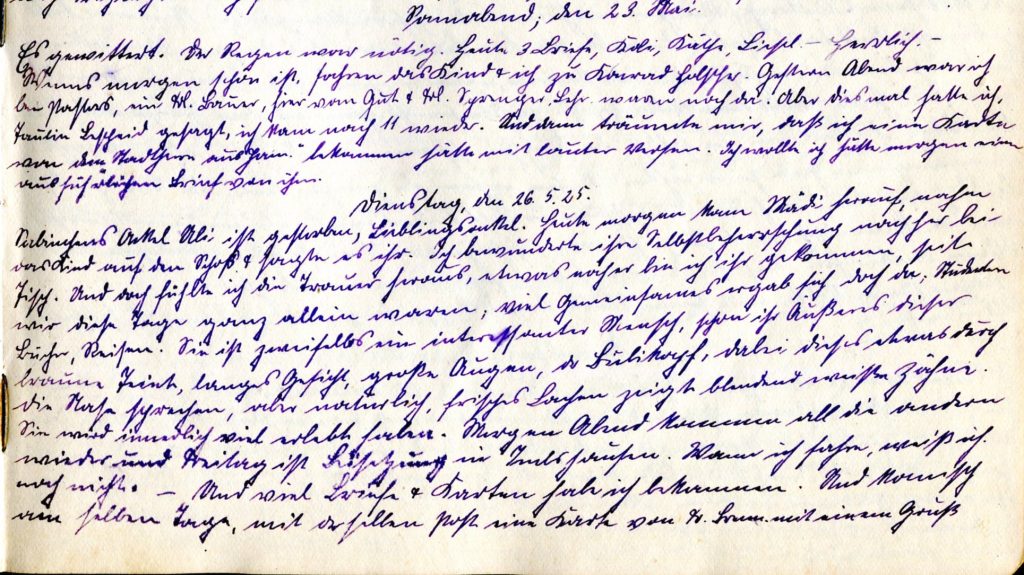 Sonnabend, den 23. Mai.
Es gewittert. Der Regen war nötig. Heute 3 Briefe, Käthe, Liesel. – Herrlich. –
Wenns morgen schön ist, fahren das Kind & ich zu Konrad Hölscher. Gestern Abend war ich
bei Pastors, ein Frl. Bauer, hier vom Gut & Frl. Sprenger, Lehr. waren noch da. Aber diesmal hatte ich,
Tantin Bescheid gesagt, ich kam nach 11 wieder. Und dann träumte mir, daß ich eine Karte
von dem Stadtherrn aus Han." bekommen hätte mit lauter Versen. Ich wollte ich hätte morgen einen
ausführlichen Brief von ihm.
Dienstag, den 26.5.25.
Onkel Uli ist gestorben, Lieblingsonkel. Heute morgen kam Mädi herauf, nahm
das Kind auf den Schoß & sagte es ihr. Ich bewunderte ihre Selbstbeherrschung nachher bei
Tisch. Und doch fühlte ich die Trauer heraus, etwas näher bin ich ihr gekommen, seit
wir diese Tage ganz allein waren; viel Gemeinsames ergab sich doch da, Studenten
Bücher, Reisen. Sie ist zweifellos ein interessanter Mensch, schon ihr Äußeres dieser
braune Teint, langes Gesicht, große Augen, der Bubikopf, dabei dieses etwas durch
die Nase sprechen, aber natürlich, frisches Lachen zeigt blendend weiße Zähne.
Sie wird innerlich viel erlebt haben. Morgen Abend kommen all die andern
wieder und Freitag ist in . Wann ich fahre, weiß ich
noch nicht. – Und viel Briefe & Karten habe ich bekommen. Und komisch
am selben Tage, mit derselben Post eine Karte von mit einem Gruß